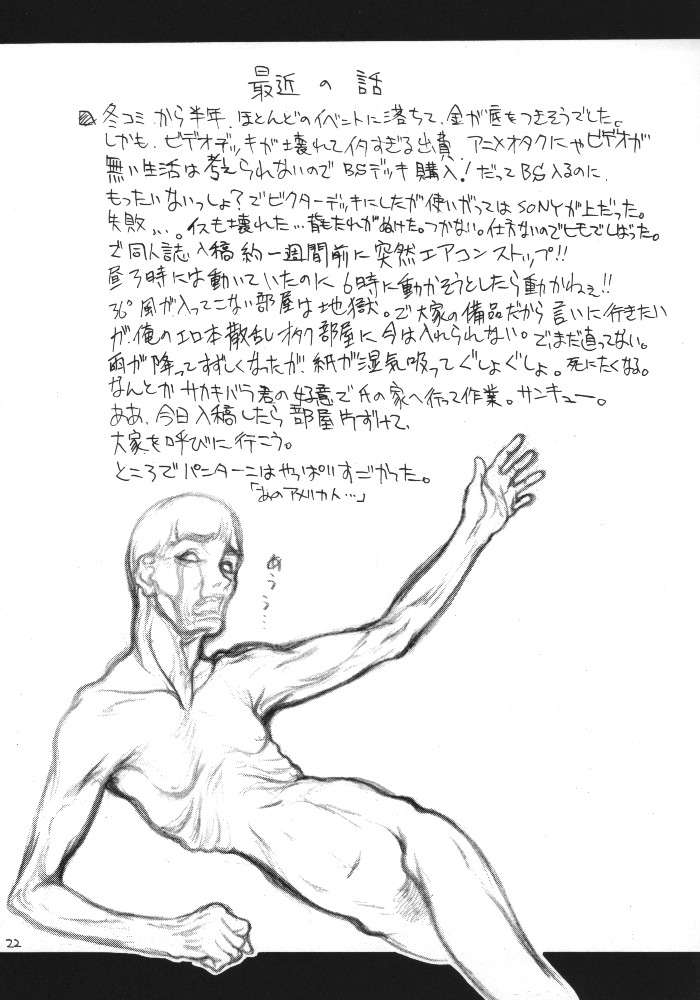 最近の話
冬コミから半年、ほとんどのイベントに落ちて、金が底もつきそうでした。
しかも、ビデオデッキが壊れてイタすぎる出費、アニメオタクにゃビデオが
無い生活は考えられないのでBSデッキ購入!だってBS入るのに、
もったいないっしょ?でビクターデッキにしたが使いがってはSONYが上だった。
失敗、、、。イスも壊れた…背もたれがぬけた。つかない。仕方ないのでヒモでしばった。
で同人誌入稿約一週間前に突然エアコンストップ!!
昼3時には動いていたのに6時に動かそうとしたら動かねぇ!!
36°風が入ってこない部屋は地獄。で大家の備品だから言いに行きたい
が、俺のエロ本散乱しオタク部屋に今は入れられない。でまだ直ってない。
雨が降ってすずしくなったが、紙が湿気吸ってぐしょぐしょ。死にたくなる。
なんとかサカキバラ君の好意で氏の家へ行って作業。サンキュー。
ああ、今日入稿したら部屋片ずけて、
大家を呼びに行こう。
ところでパンターニはやっぱりすごかった。
「あのアメリカ人…」
あうう…
22